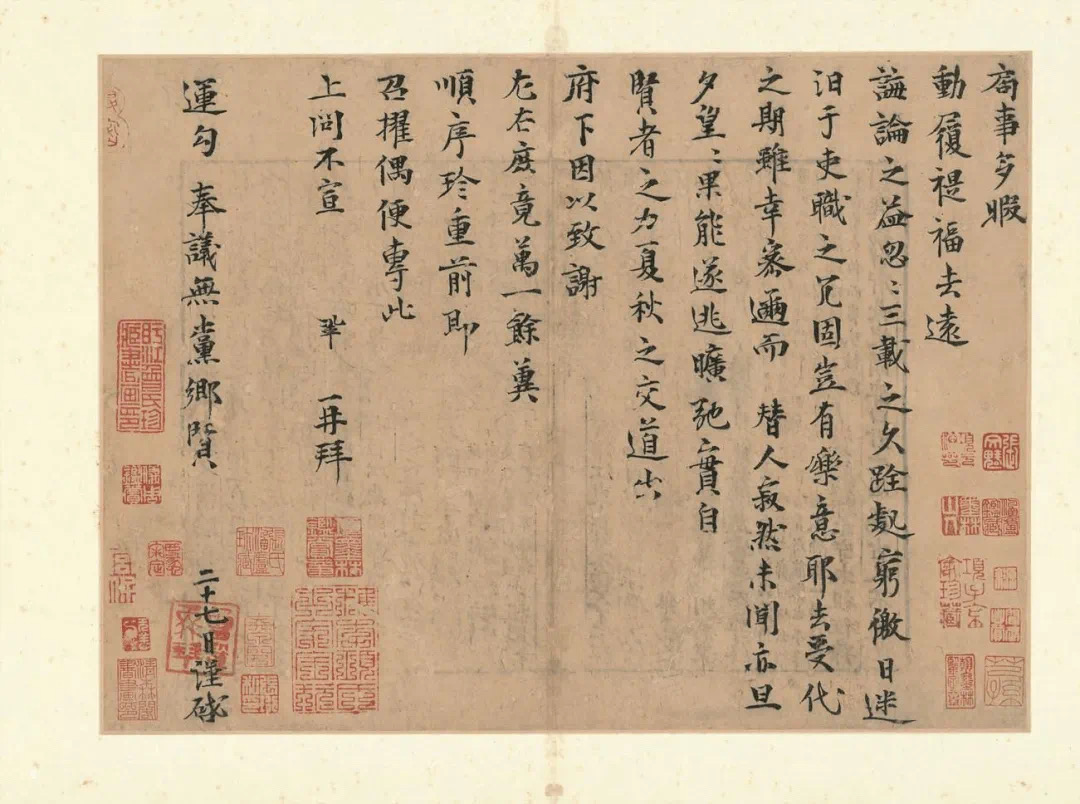 局事多暇
動履禔福去遠
誨論之益忽〻三載之久跧處窮徼日迷
汩于吏職之冗固豈有樂意耶去受代
之期雖幸密邇而替人寂然未聞亦旦
夕望〻果能遂逃曠弛實自
賢者之力夏秋之交道出
府下因以致謝
左右庶竟萬一餘冀
順序珍重前即
召擢偶便專此
上問不宣 鞏 再拜
運勾 奉議無黨鄉賢
二十七日謹啟
項子京家珍藏
盱江曾氏珍藏書畫印